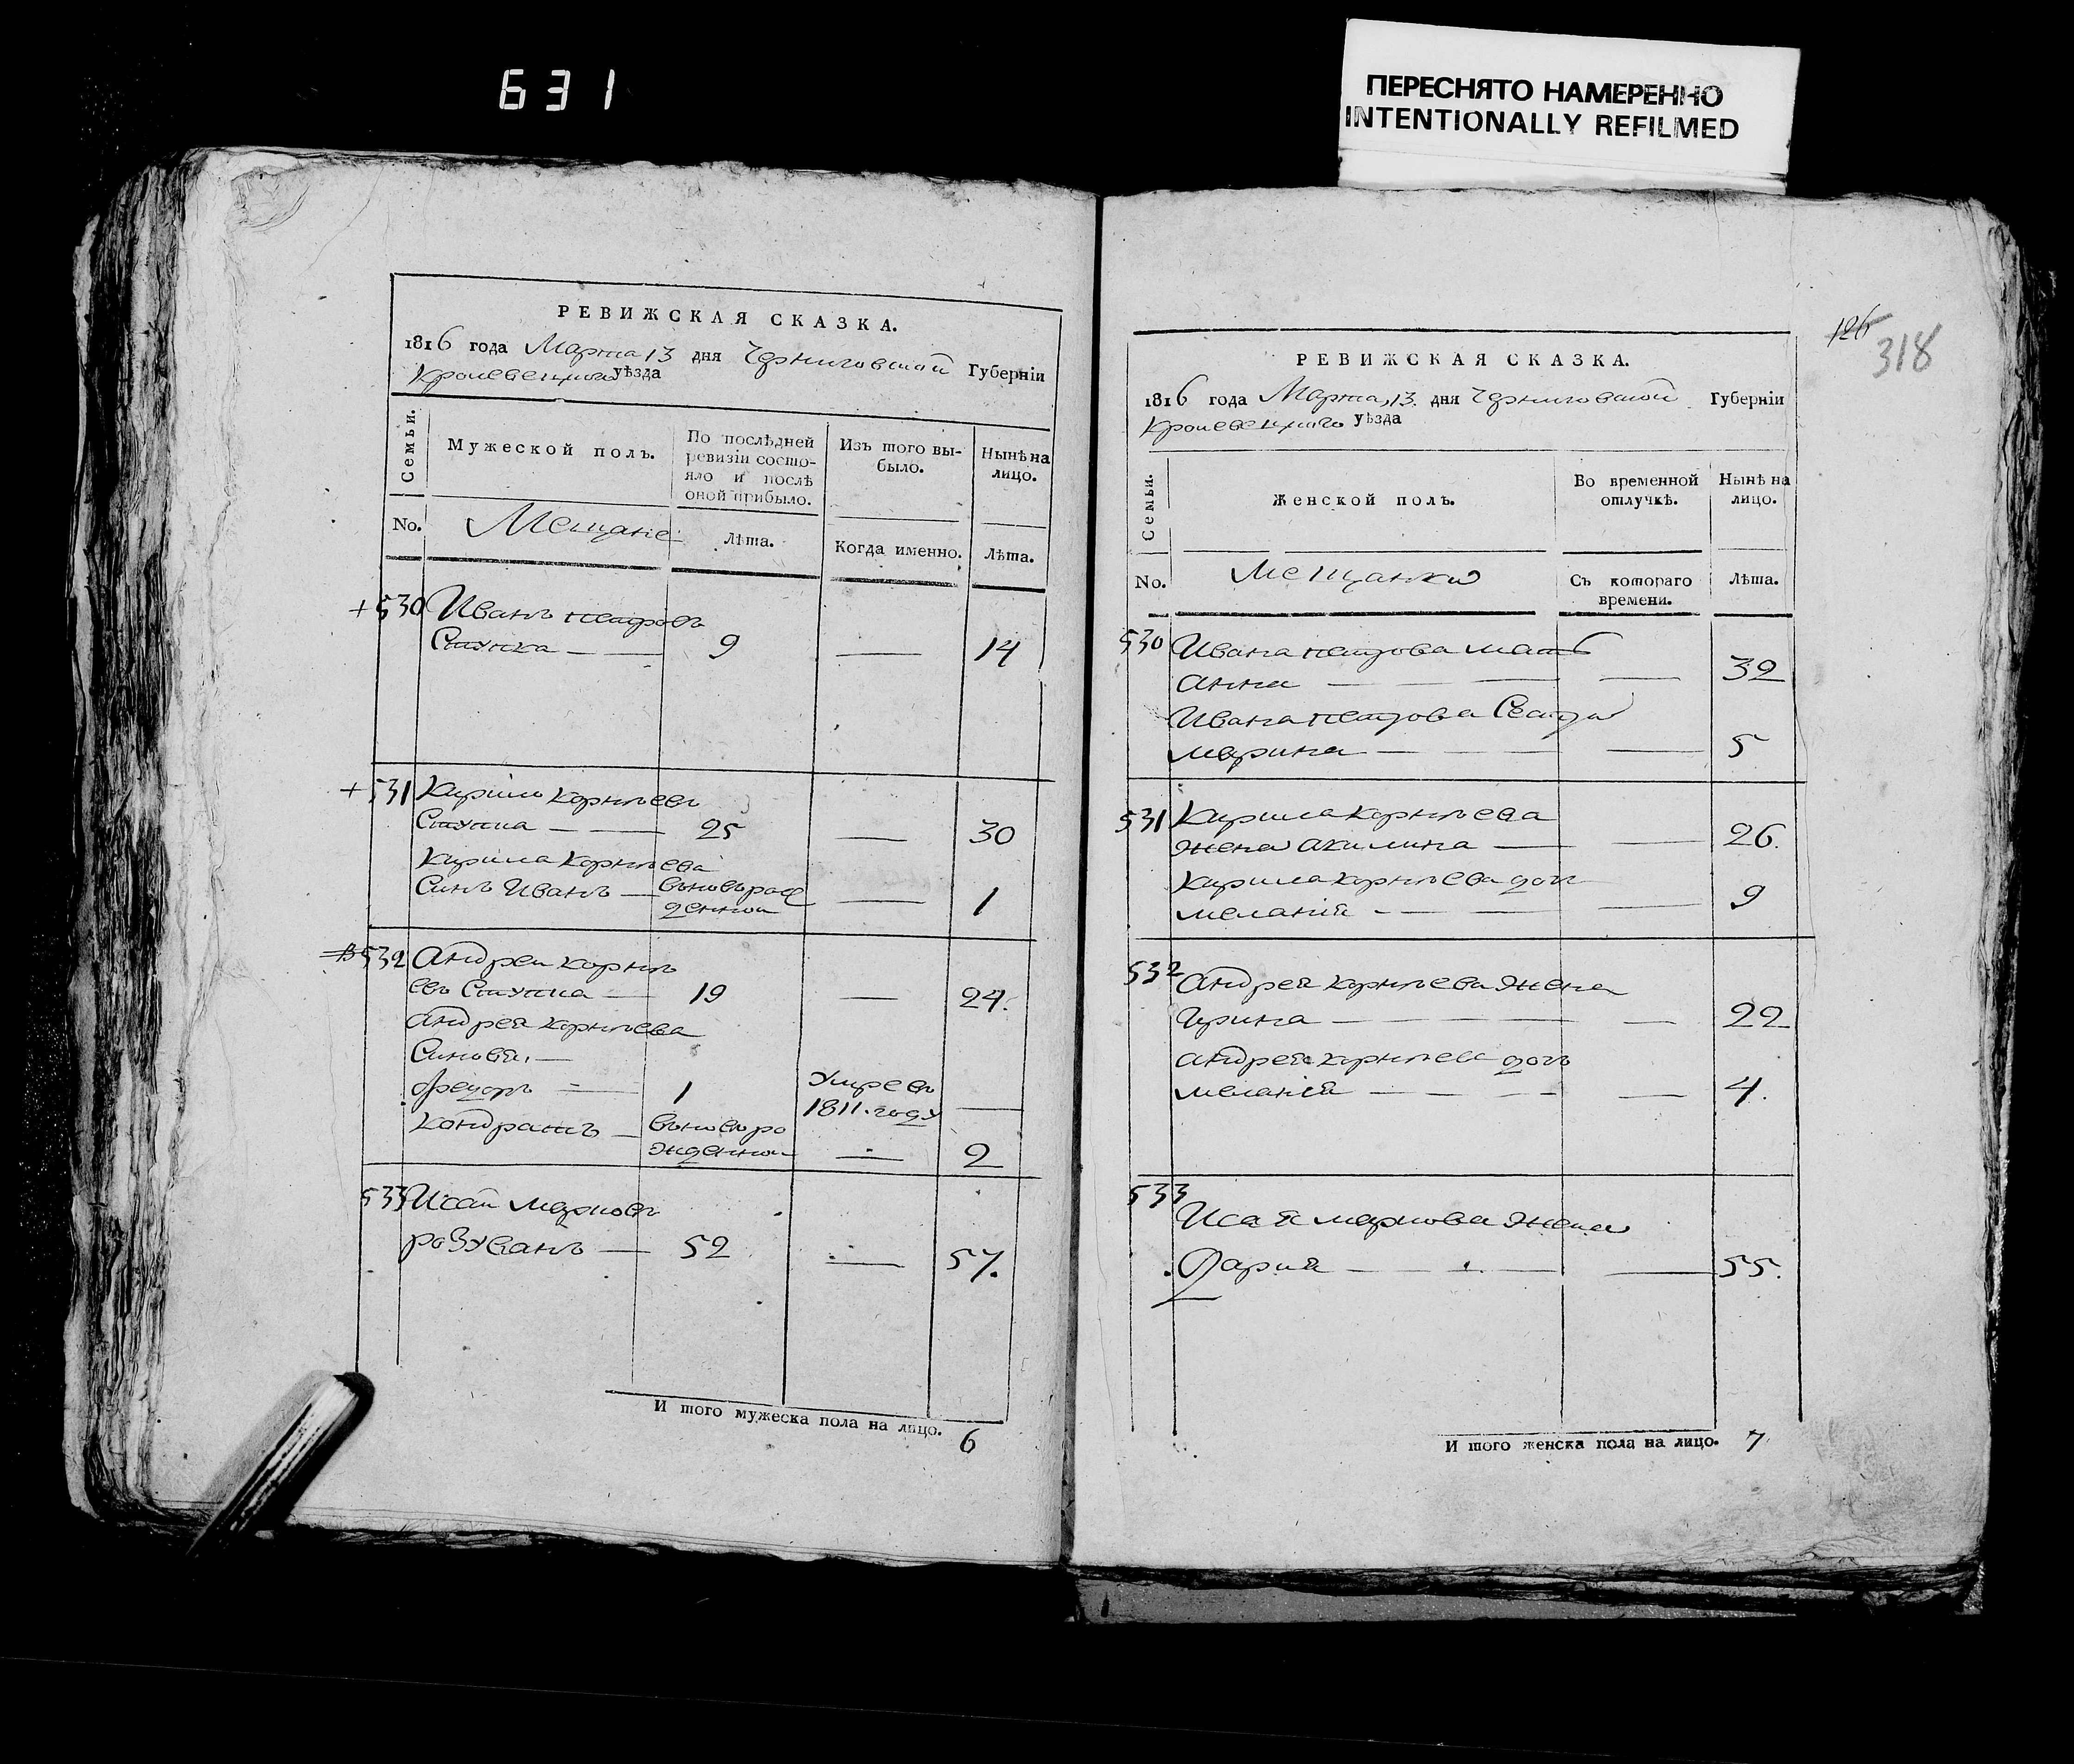 631
ПЕРЕСНЯТО НАМЕРЕННО
INTENTIONALLY REFILMED
РЕВИЖСКАЯ СКАЗКА.
1816 года Марта 13 дня Черниговской Губерніи
Кролевецкого уѣзда
Семьи.
Мужеской полъ.
По послѣдней ревизіи состояло и послѣ оной прибыло.
Изъ того выбыло.
Нынѣ на лицо.
No.
Мещане
Лѣта.
Когда именно.
Лѣта.
+ 530 Иванъ петровъ
9 — 14
+ 531 Кирило Корнѣевъ
25 — 30
Кирила Корнѣева
Синъ Иванъ — вновь рож
денной — 1
532 Андреи корнѣ
евъ — 19 — 24.
андрея корнѣева
Синовя, —
Федоръ — 1 Умре въ
1811. году —
Кондратъ — вновь ро
жденной — 2
533 Исаи марковъ
розуванъ — 52 — 57.
И того мужеска пола на лицо. 6
126
318
РЕВИЖСКАЯ СКАЗКА.
1816 года Марта, 13. дня Черниговской Губерніи
Кролевецкого уѣзда
Семьи.
Женской полъ.
Во временной отлучкѣ.
Нынѣ на лицо.
No.
Мещанки
Съ котораго времени.
Лѣта.
530 Ивана петрова мать
анна — — — 32
Ивана петрова Сестра
марина — — — 5
531 Кирила корнѣева
жена акилина — — 26.
Кирила корнѣева дочь
меланія — — — 9
532 андрея корнѣева жена
Ирина — — — 22
андрея корнѣева дочь
меланія — — — 4.
533
Исая маркова жена
Дария — — — 55.
И того женска пола на лицо. 7